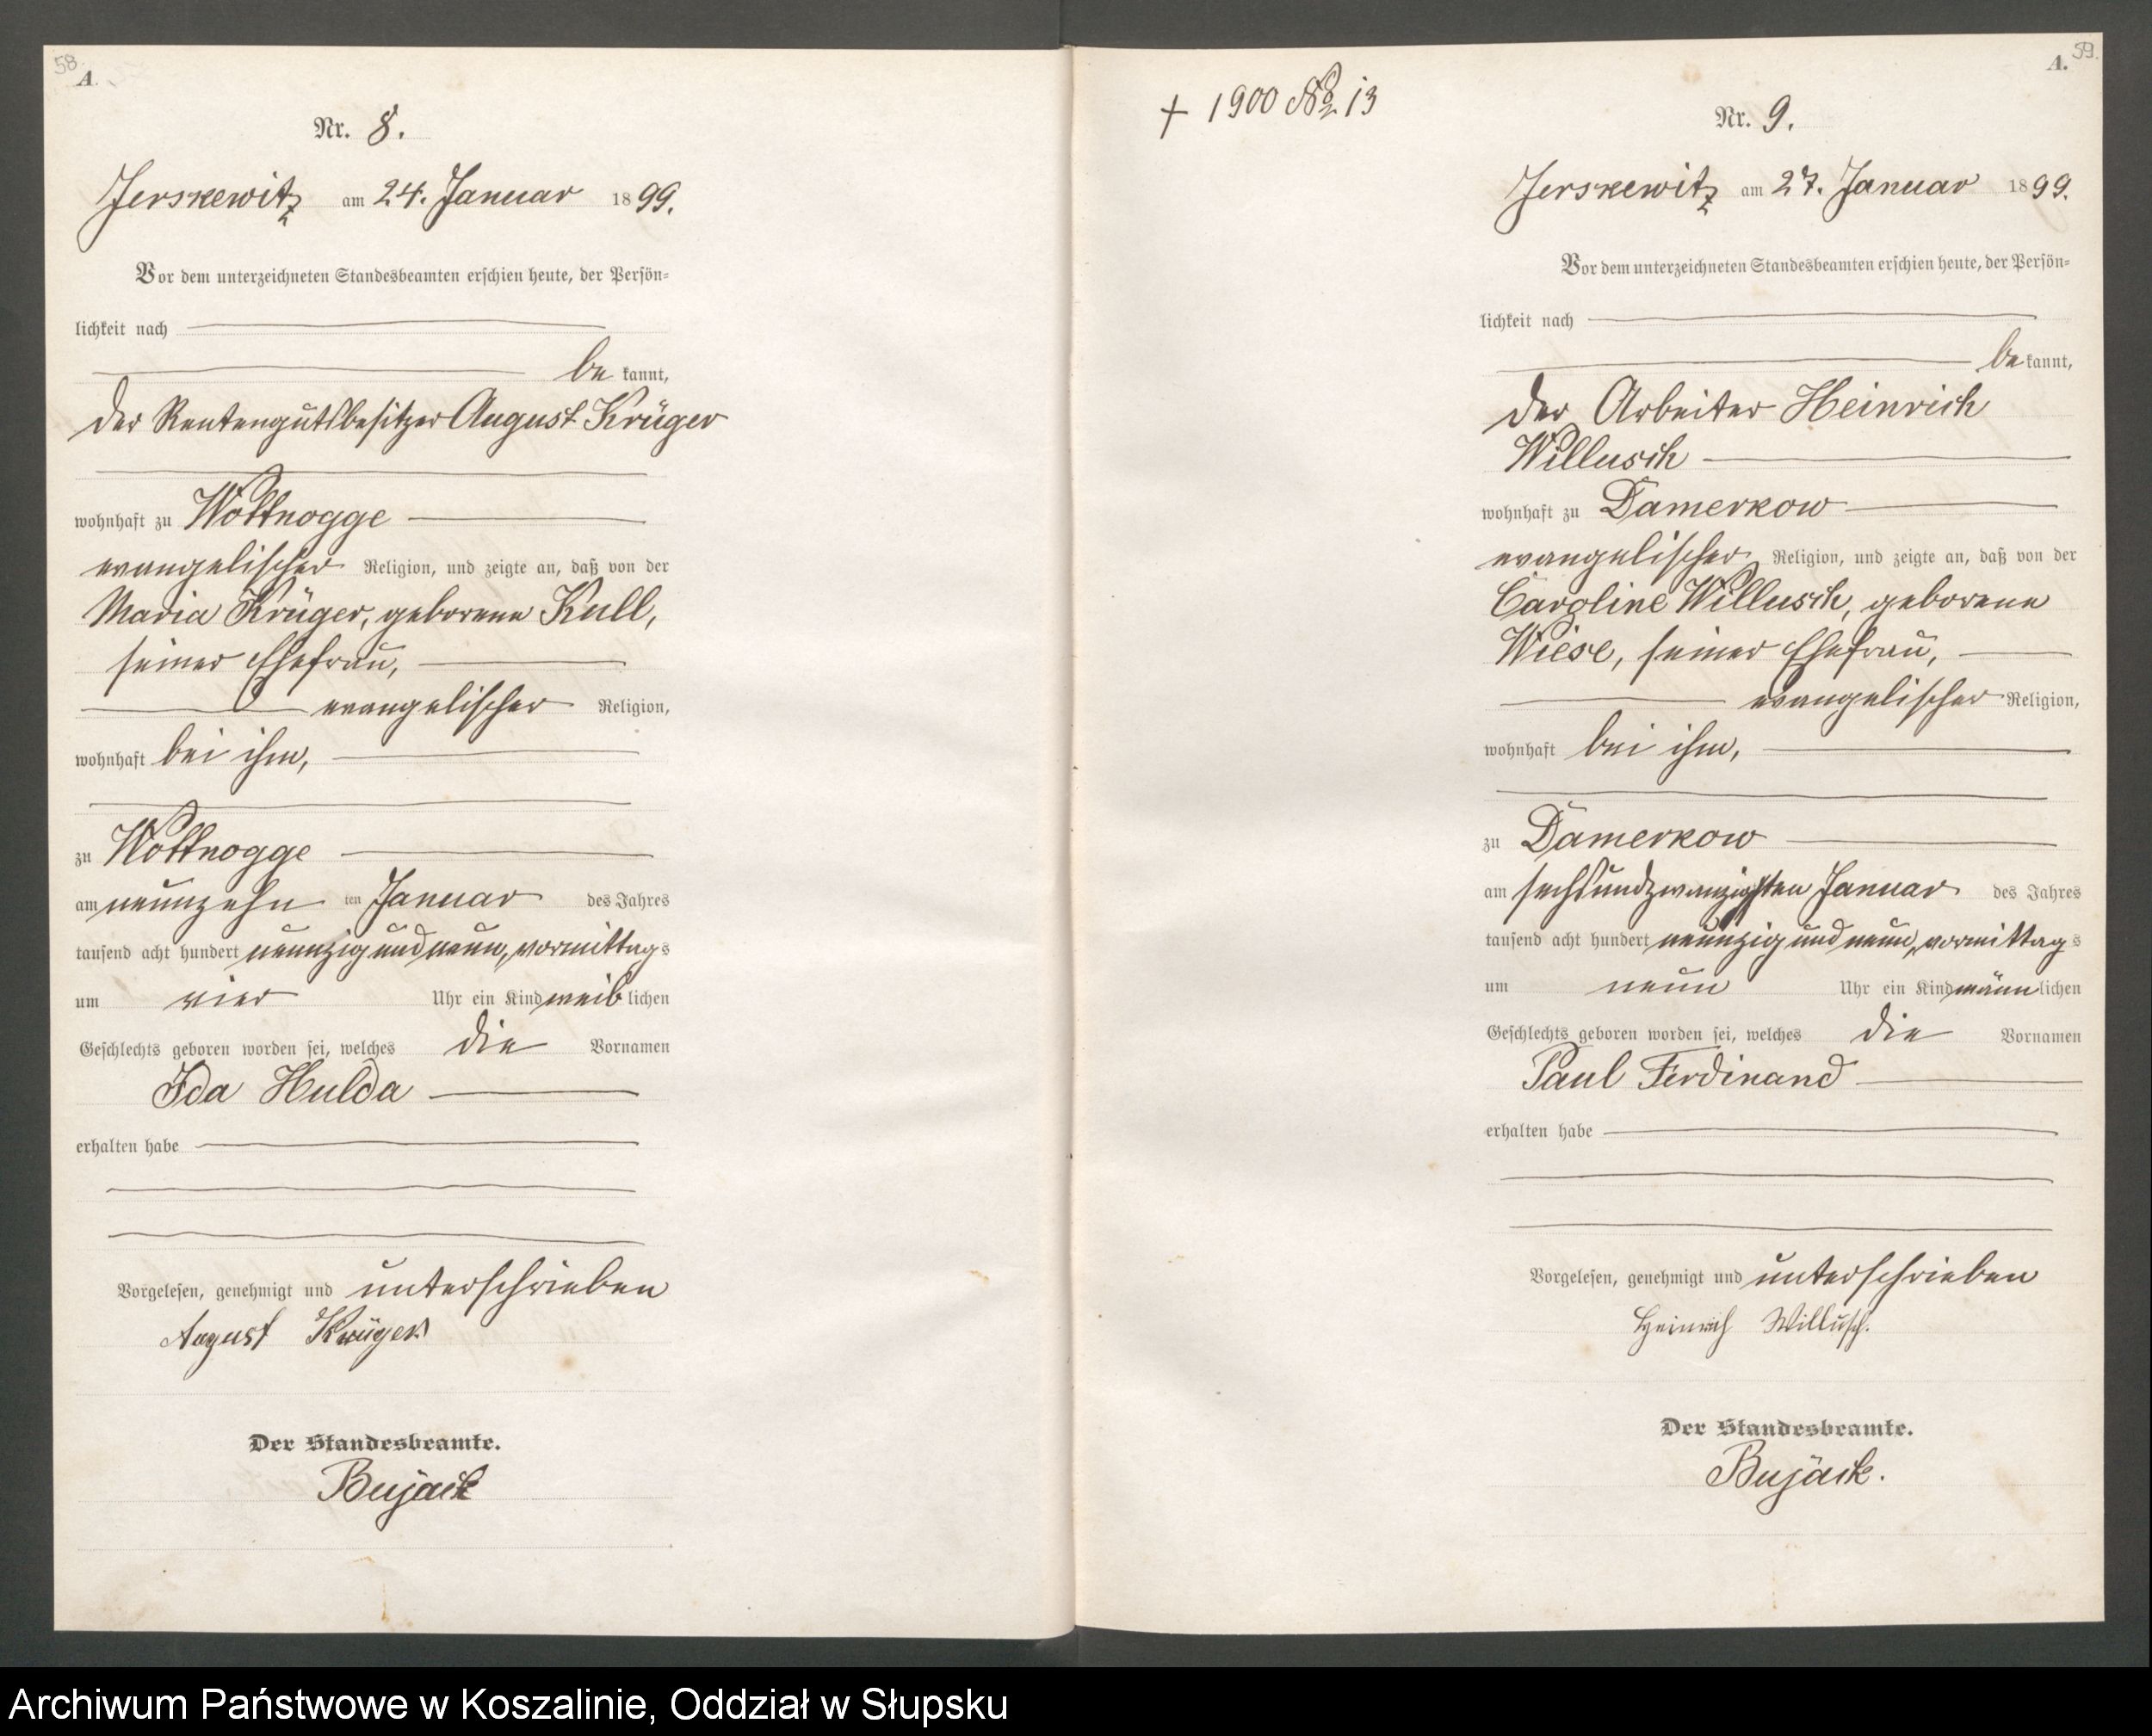 58.
A.
Nr. 8.
Jerskewitz am 24. Januar 1899.
Vor dem unterzeichneten Standesbeamten erschien heute, der Persön=
lichkeit nach
be kannt,
der Rentengutsbesitzer August Krüger
wohnhaft zu Wottnogge
evangelischer Religion, und zeigte an, daß von der
Maria Krüger, geborene Kull,
seiner Ehefrau,
evangelischer Religion,
wohnhaft bei ihm,
zu Wottnogge
am neunzehn ten Januar des Jahres
tausend acht hundert neunzig und neun, vormittags
um vier Uhr ein Kind weiblichen
Geschlechts geboren worden sei, welches die Vornamen
Ida Hulda
erhalten habe
Vorgelesen, genehmigt und unterschrieben
August Krüger
Der Standesbeamte.
Bujack
59.
A.
+ 1900 No 13
Nr. 9.
Jerskewitz am 27. Januar 1899.
Vor dem unterzeichneten Standesbeamten erschien heute, der Persön=
lichkeit nach
be kannt,
der Arbeiter Heinrich
Willusch
wohnhaft zu Damerkow
evangelischer Religion, und zeigte an, daß von der
Caroline Willusch, geborene
Wiese, seiner Ehefrau,
evangelischer Religion,
wohnhaft bei ihm,
zu Damerkow
am sechsundzwanzigsten Januar des Jahres
tausend acht hundert neunzig und neun, vormittags
um neun Uhr ein Kind männlichen
Geschlechts geboren worden sei, welches die Vornamen
Paul Ferdinand
erhalten habe
Vorgelesen, genehmigt und unterschrieben
Heinrich Willusch.
Der Standesbeamte.
Bujack.
Archiwum Państwowe w Koszalinie, Oddział w Słupsku